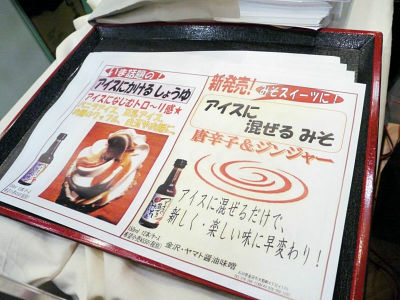 今話題の!
アイスにかける しょうゆ
アイスになじむトロ〜リ感★
新発売! みそスイーツに!
アイスに
混ぜる みそ
唐辛子&ジンジャー
アイスに混ぜるだけで、
新しく・楽しい味に早変わり!
金沢・ヤマト醤油味噌